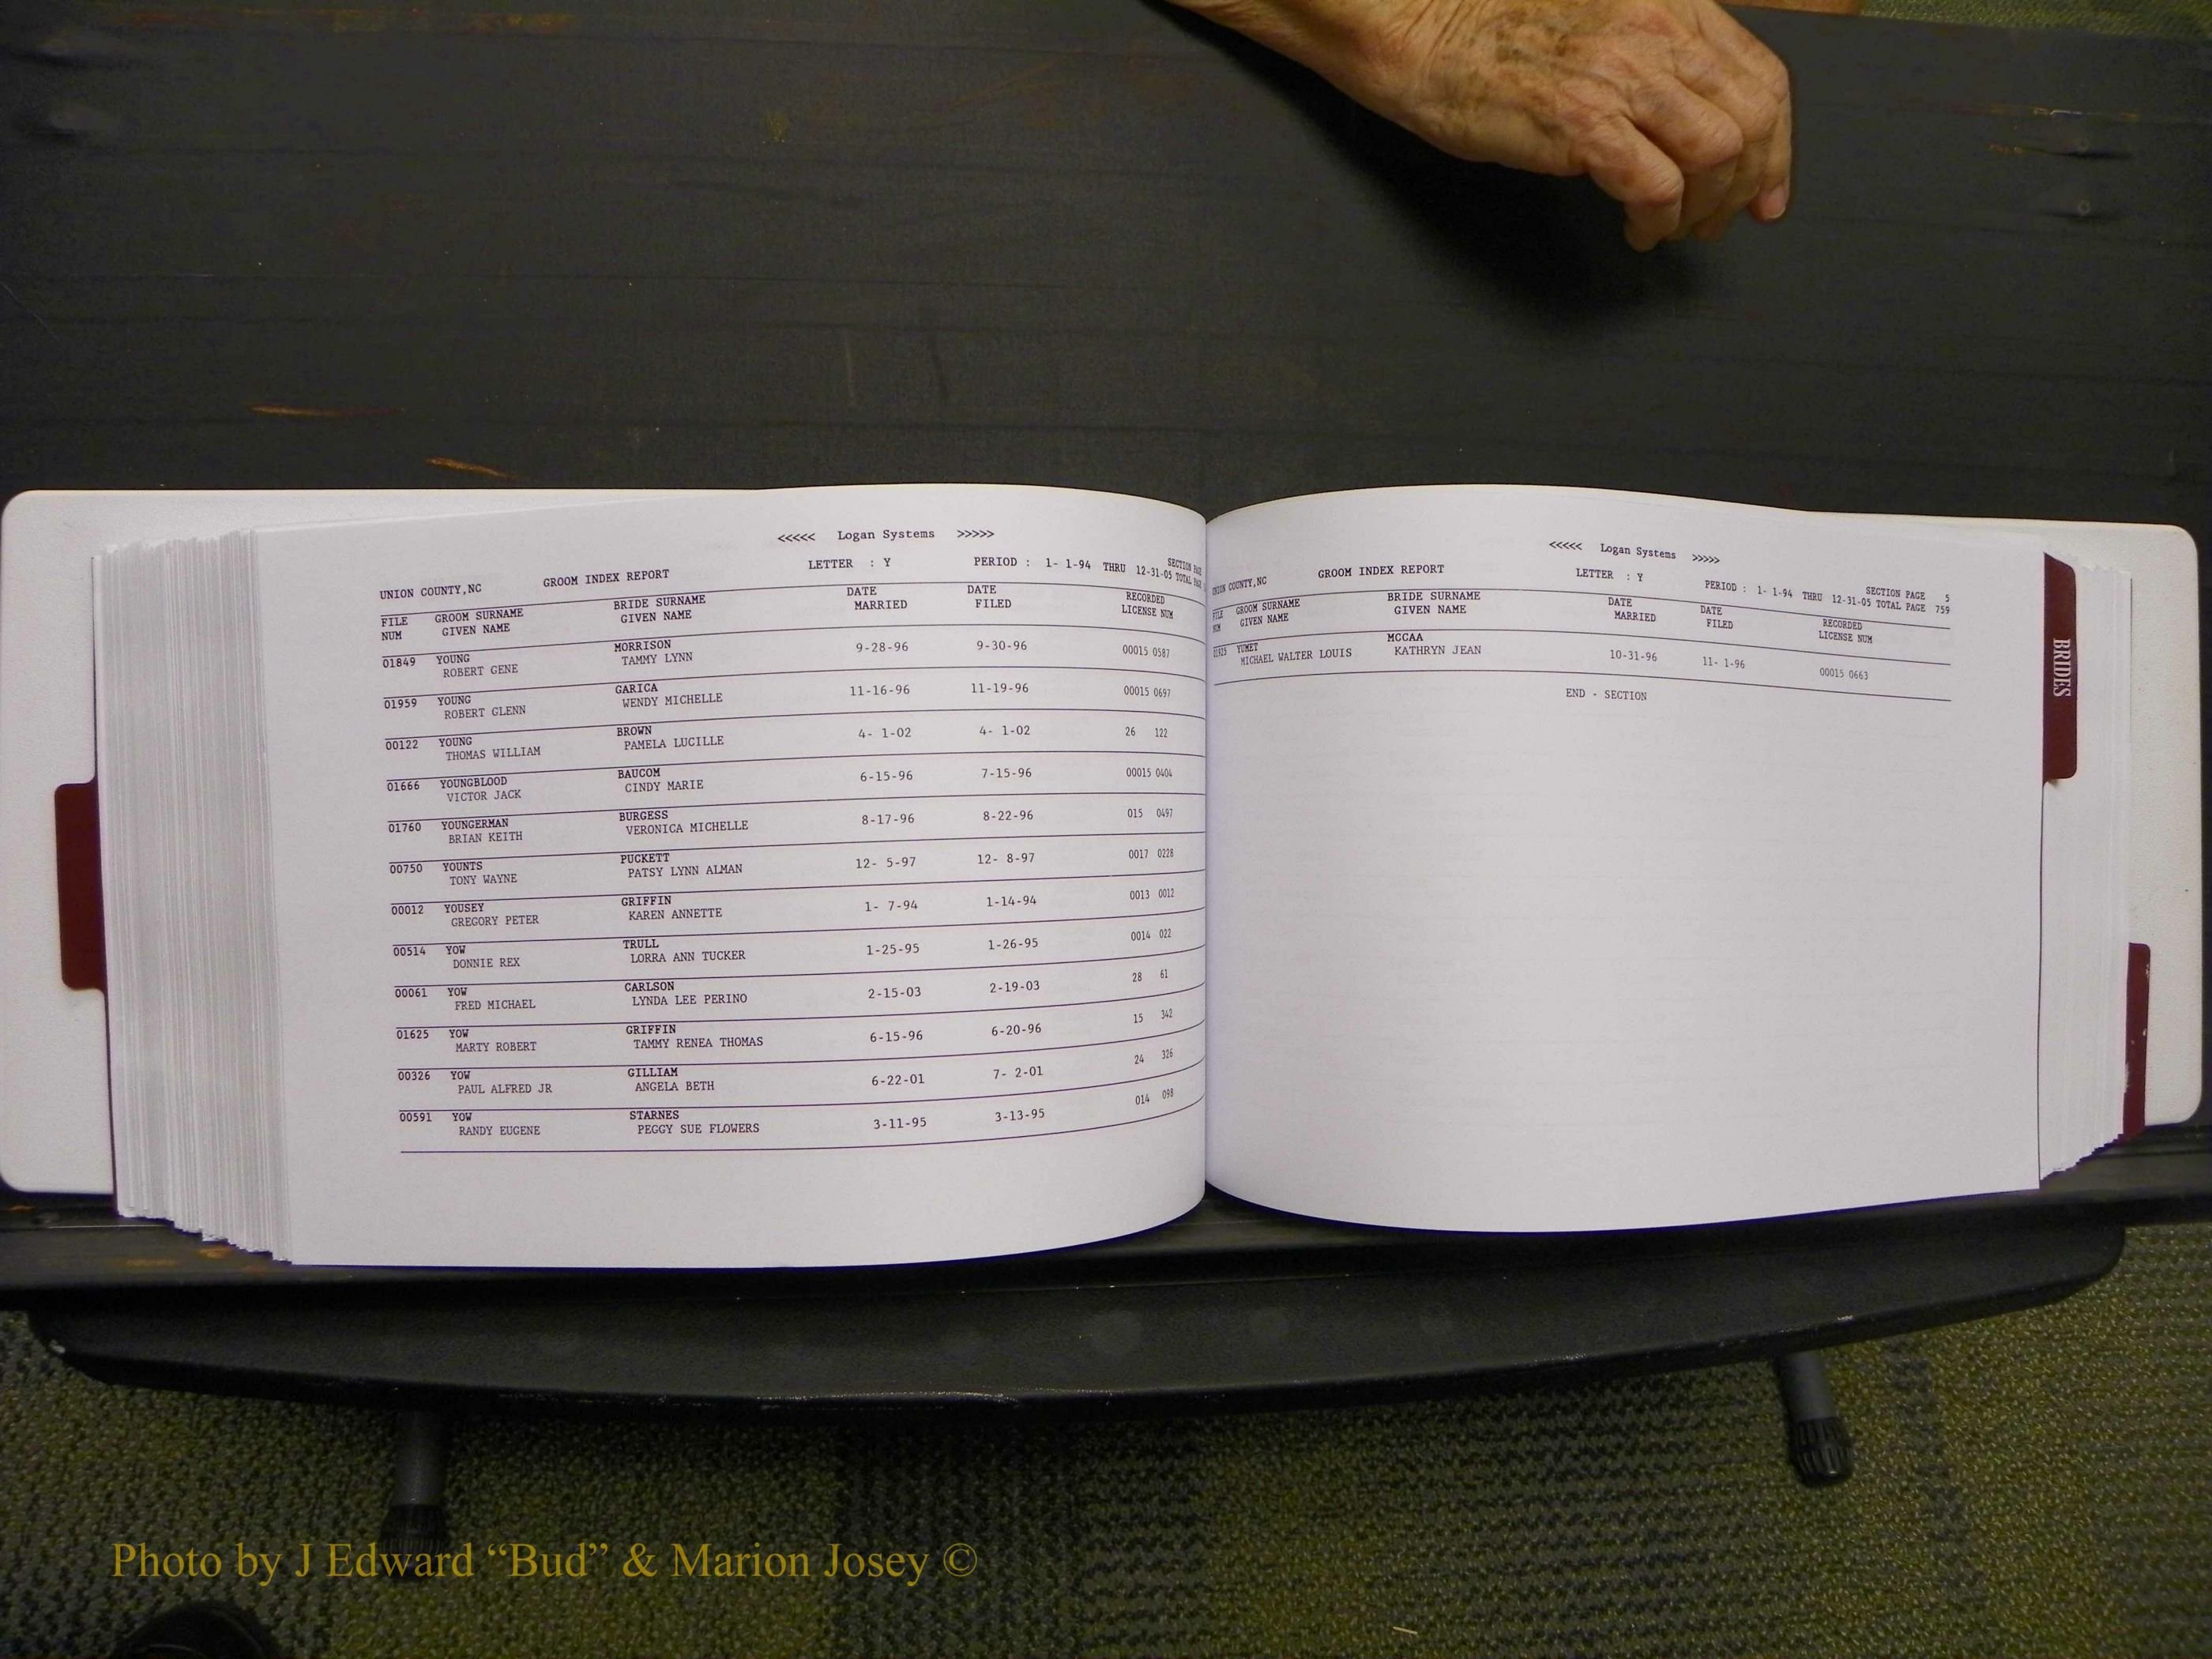 <<<<< Logan Systems >>>>>
UNION COUNTY,NC GROOM INDEX REPORT LETTER : Y PERIOD : 1- 1-94 THRU 12-31-05 SECTION PAGE
TOTAL PAGE
FILE GROOM SURNAME BRIDE SURNAME DATE DATE RECORDED
NUM GIVEN NAME GIVEN NAME MARRIED FILED LICENSE NUM
01849 YOUNG MORRISON 9-28-96 9-30-96 00015 0587
ROBERT GENE TAMMY LYNN
01959 YOUNG GARICA 11-16-96 11-19-96 00015 0697
ROBERT GLENN WENDY MICHELLE
00122 YOUNG BROWN 4- 1-02 4- 1-02 26 122
THOMAS WILLIAM PAMELA LUCILLE
01666 YOUNGBLOOD BAUCOM 6-15-96 7-15-96 00015 0404
VICTOR JACK CINDY MARIE
01760 YOUNGERMAN BURGESS 8-17-96 8-22-96 015 0497
BRIAN KEITH VERONICA MICHELLE
00750 YOUNTS PUCKETT 12- 5-97 12- 8-97 0017 0228
TONY WAYNE PATSY LYNN ALMAN
00012 YOUSEY GRIFFIN 1- 7-94 1-14-94 0013 0012
GREGORY PETER KAREN ANNETTE
00514 YOW TRULL 1-25-95 1-26-95 0014 022
DONNIE REX LORRA ANN TUCKER
00061 YOW CARLSON 2-15-03 2-19-03 28 61
FRED MICHAEL LYNDA LEE PERINO
01625 YOW GRIFFIN 6-15-96 6-20-96 15 342
MARTY ROBERT TAMMY RENEA THOMAS
00326 YOW GILLIAM 6-22-01 7- 2-01 24 326
PAUL ALFRED JR ANGELA BETH
00591 YOW STARNES 3-11-95 3-13-95 014 098
RANDY EUGENE PEGGY SUE FLOWERS
<<<<< Logan Systems >>>>>
UNION COUNTY,NC GROOM INDEX REPORT LETTER : Y PERIOD : 1- 1-94 THRU 12-31-05 SECTION PAGE 5
TOTAL PAGE 759
FILE GROOM SURNAME BRIDE SURNAME DATE DATE RECORDED
NUM GIVEN NAME GIVEN NAME MARRIED FILED LICENSE NUM
01925 YUMET MCCAA 10-31-96 11- 1-96 00015 0663
MICHAEL WALTER LOUIS KATHRYN JEAN
END - SECTION
BRIDES
Photo by J Edward “Bud” & Marion Josey ©